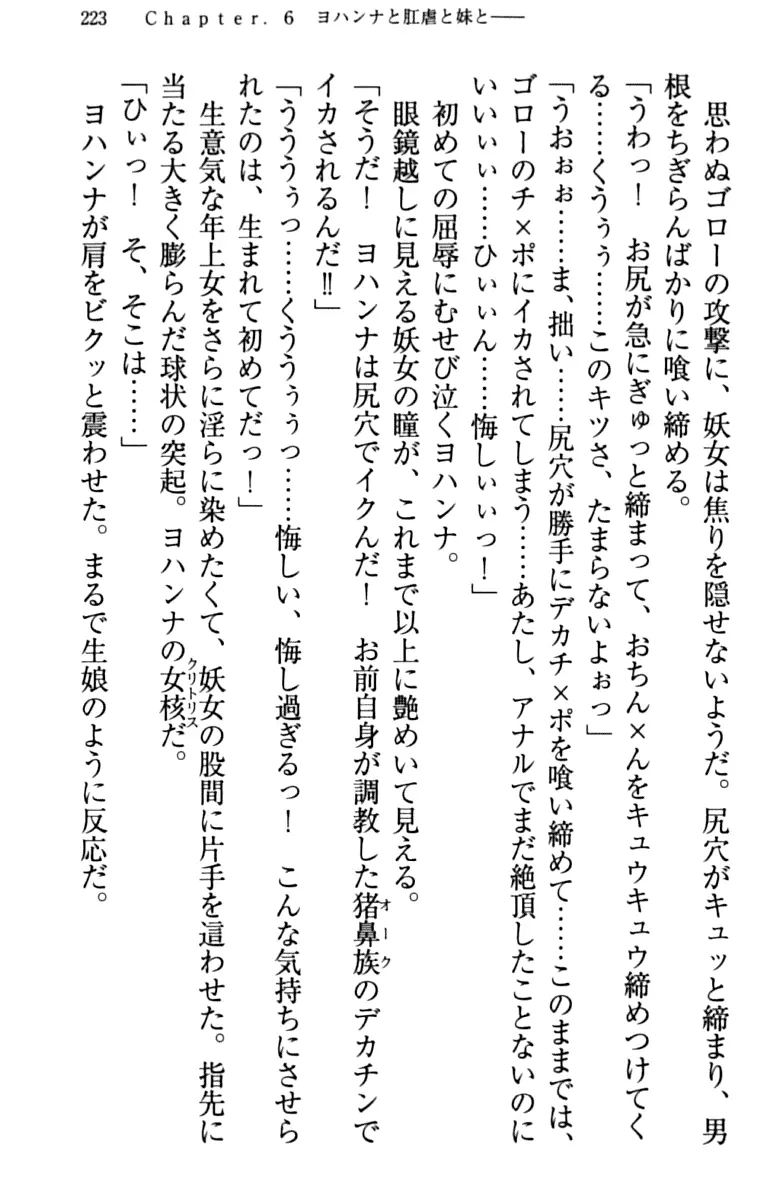 223　Chapter. 6　ヨハンナと肛虐と妹と――
思わぬゴローの攻撃に、妖女は焦りを隠せないようだ。尻穴がキュッと締まり、男
根をちぎらんばかりに喰い締める。
「うわっ！　お尻が急にぎゅっと締まって、おちん×んをキュウキュウ締めつけてく
る……くうぅぅ……このキツさ、たまらないよぉっ」
「うおぉぉ……ま、拙い……尻穴が勝手にデカチ×ポを喰い締めて……このままでは、
ゴローのチ×ポにイカされてしまう……あたし、アナルでまだ絶頂したことないのに
いいぃぃ……ひぃぃん……悔しぃぃっ！」
初めての屈辱にむせび泣くヨハンナ。
眼鏡越しに見える妖女の瞳が、これまで以上に艶めいて見える。
「そうだ！　ヨハンナは尻穴でイクんだ！　お前自身が調教した猪鼻族オークのデカチンで
イカされるんだ‼」
「うううぅっ……くううぅぅっ……悔しい、悔し過ぎるっ！　こんな気持ちにさせら
れたのは、生まれて初めてだっ！」
生意気な年上女をさらに淫らに染めたくて、妖女の股間に片手を這わせた。指先に
当たる大きく膨らんだ球状の突起。ヨハンナの女核クリトリスだ。
「ひぃっ！　そ、そこは……」
ヨハンナが肩をビクッと震わせた。まるで生娘のように反応だ。